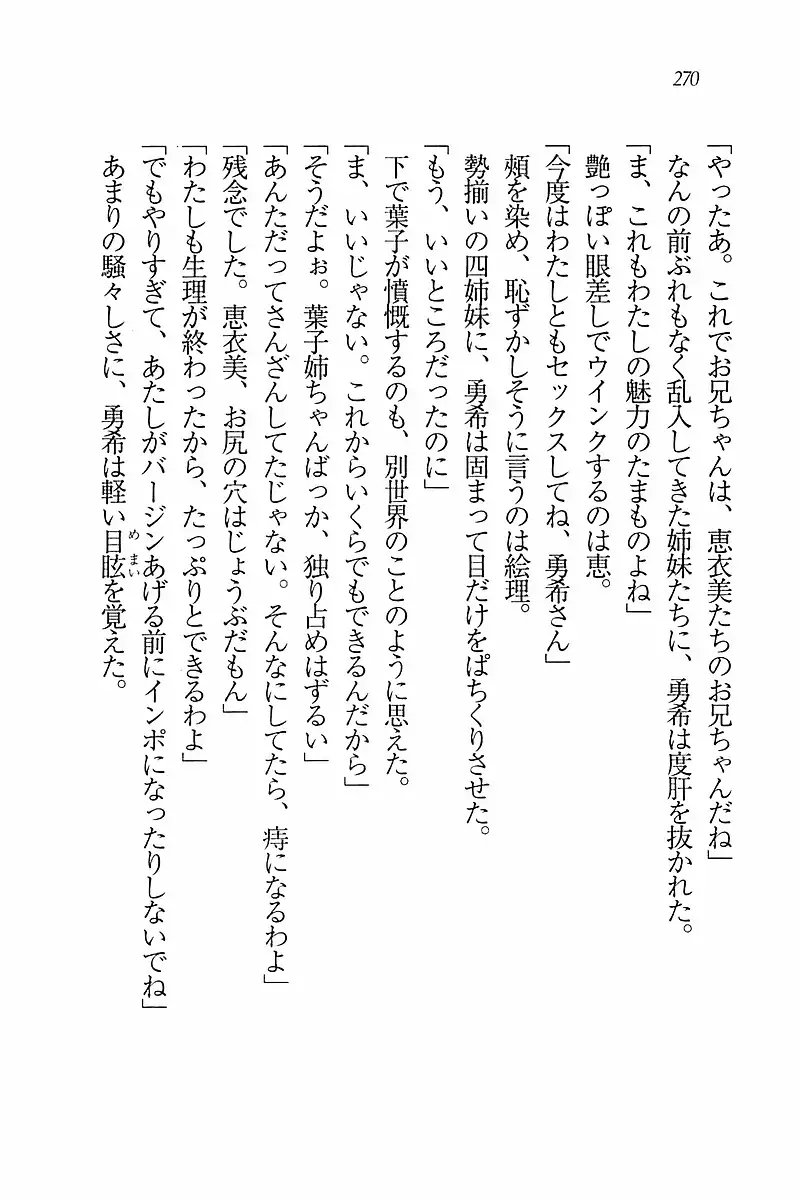 270
「やったあ。これでお兄ちゃんは、恵衣美たちのお兄ちゃんだね」
なんの前ぶれもなく乱入してきた姉妹たちに、勇希は度肝を抜かれた。
「ま、これもわたしの魅力のたまものよね」
艶っぽい眼差しでウインクするのは恵。
「今度はわたしともセックスしてね、勇希さん」
頰を染め、恥ずかしそうに言うのは絵理。
勢揃いの四姉妹に、勇希は固まって目だけをぱちくりさせた。
「もう、いいところだったのに」
下で葉子が憤慨するのも、別世界のことのように思えた。
「ま、いいじゃない。これからいくらでもできるんだから」
「そうだよぉ。葉子姉ちゃんばっか、独り占めはずるい」
「あんただってさんざんしてたじゃない。そんなにしてたら、痔になるわよ」
「残念でした。恵衣美、お尻の穴はじょうぶだもん」
「わたしも生理が終わったから、たっぷりとできるわよ」
「でもやりすぎて、あたしがバージンあげる前にインポになったりしないでね」
あまりの騒々しさに、勇希は軽い目眩めまいを覚えた。